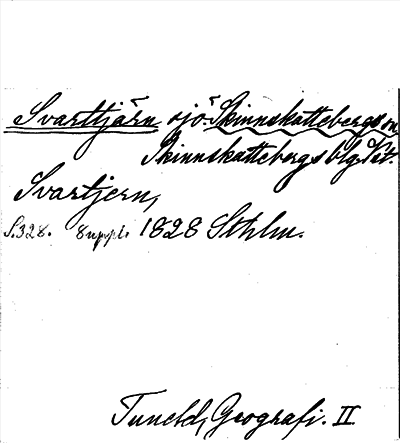 Svarttjärn sjö Skinnskattebergs sn
Skinnskattebergs blg. Vst.
Svartjern,
S.328. 8 uppl. 1828 Sthlm.
Tuneld, Geografi. II